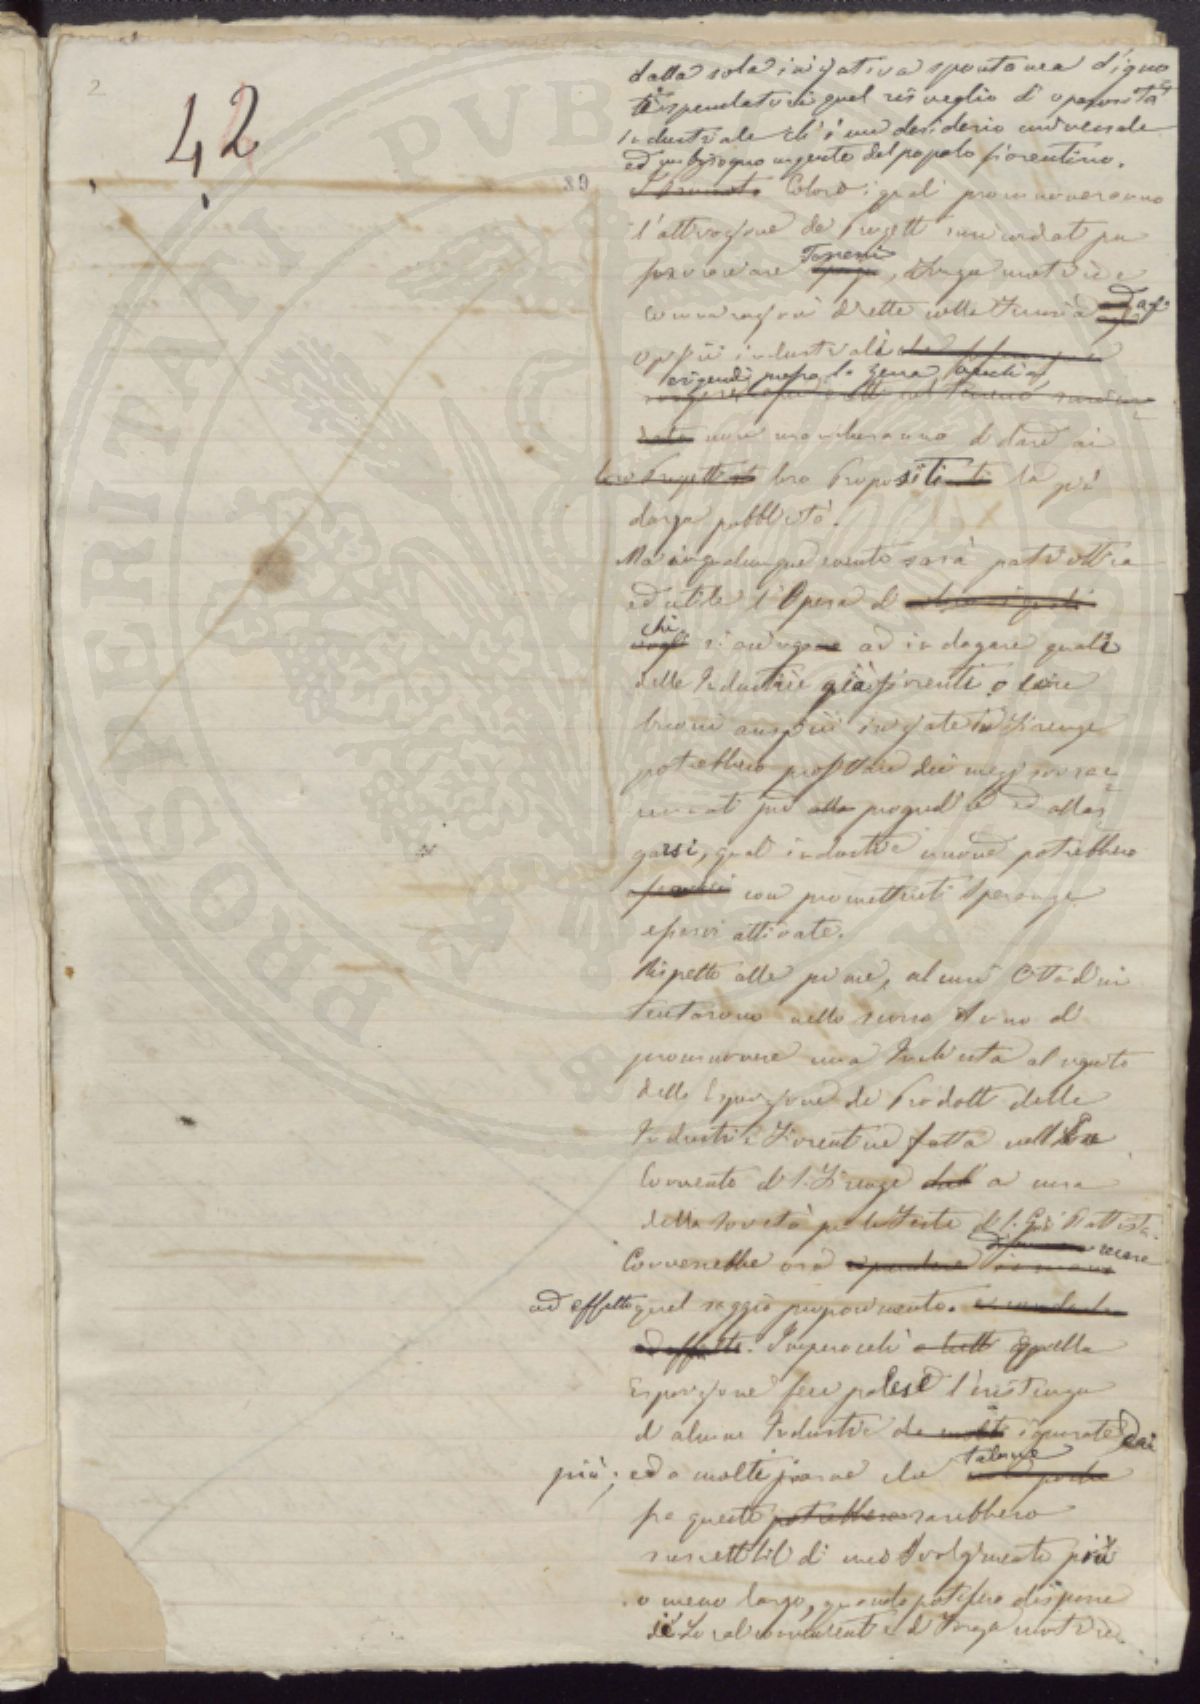 2
42
89
PROSPERITATI PUBLICAE
dalla sola iniziativa spontanea d'igno-
ti speculatori quel risveglio di operosità
industriale ch'è un desiderio universale
ed un bisogno urgente del popolo fiorentino.
Coloro i quali promuoveranno
l'attuazione de' Progetti summentovati per
procurare Terreni, Forza motrice e
comunicazioni dirette colla Ferrovia
opifici industriali
erigendi presso la Zecca Vecchia
non mancheranno di dare ai
loro Progetti loro Propositi la più
larga pubblicità.
Ma in qualunque evento sarà patriottica
ed utile l'Opera di
chi si accinga ad indagare quali
delle Industrie già fiorenti o sotto
buoni auspicii iniziate in Firenze
potrebbero profittare dei mezzi sovrac-
cennati per progredire ed allar-
garsi, quali industrie nuove potrebbero
con promettenti speranze
esservi attivate.
Rispetto alle prime, alcuni Cittadini
tentarono nello scorso Anno di
promuovere una Inchiesta al seguito
della Esposizione de' Prodotti delle
Industrie Fiorentine fatta nell'Ex
Convento di S. Firenze a cura
della Società per le Feste di S. Gio Battista.
Converrebbe ora recare
ad effetto quel saggio proponimento.
Imperocchè quella
Esposizione fece palese l'esistenza
di alcune Industrie ignorate dai
più; ed a molti parve che talune
fra queste sarebbero
suscettibili di uno Svolgimento più
o meno largo, quando potessero disporre
di Locali convenienti e di Forza motrice.